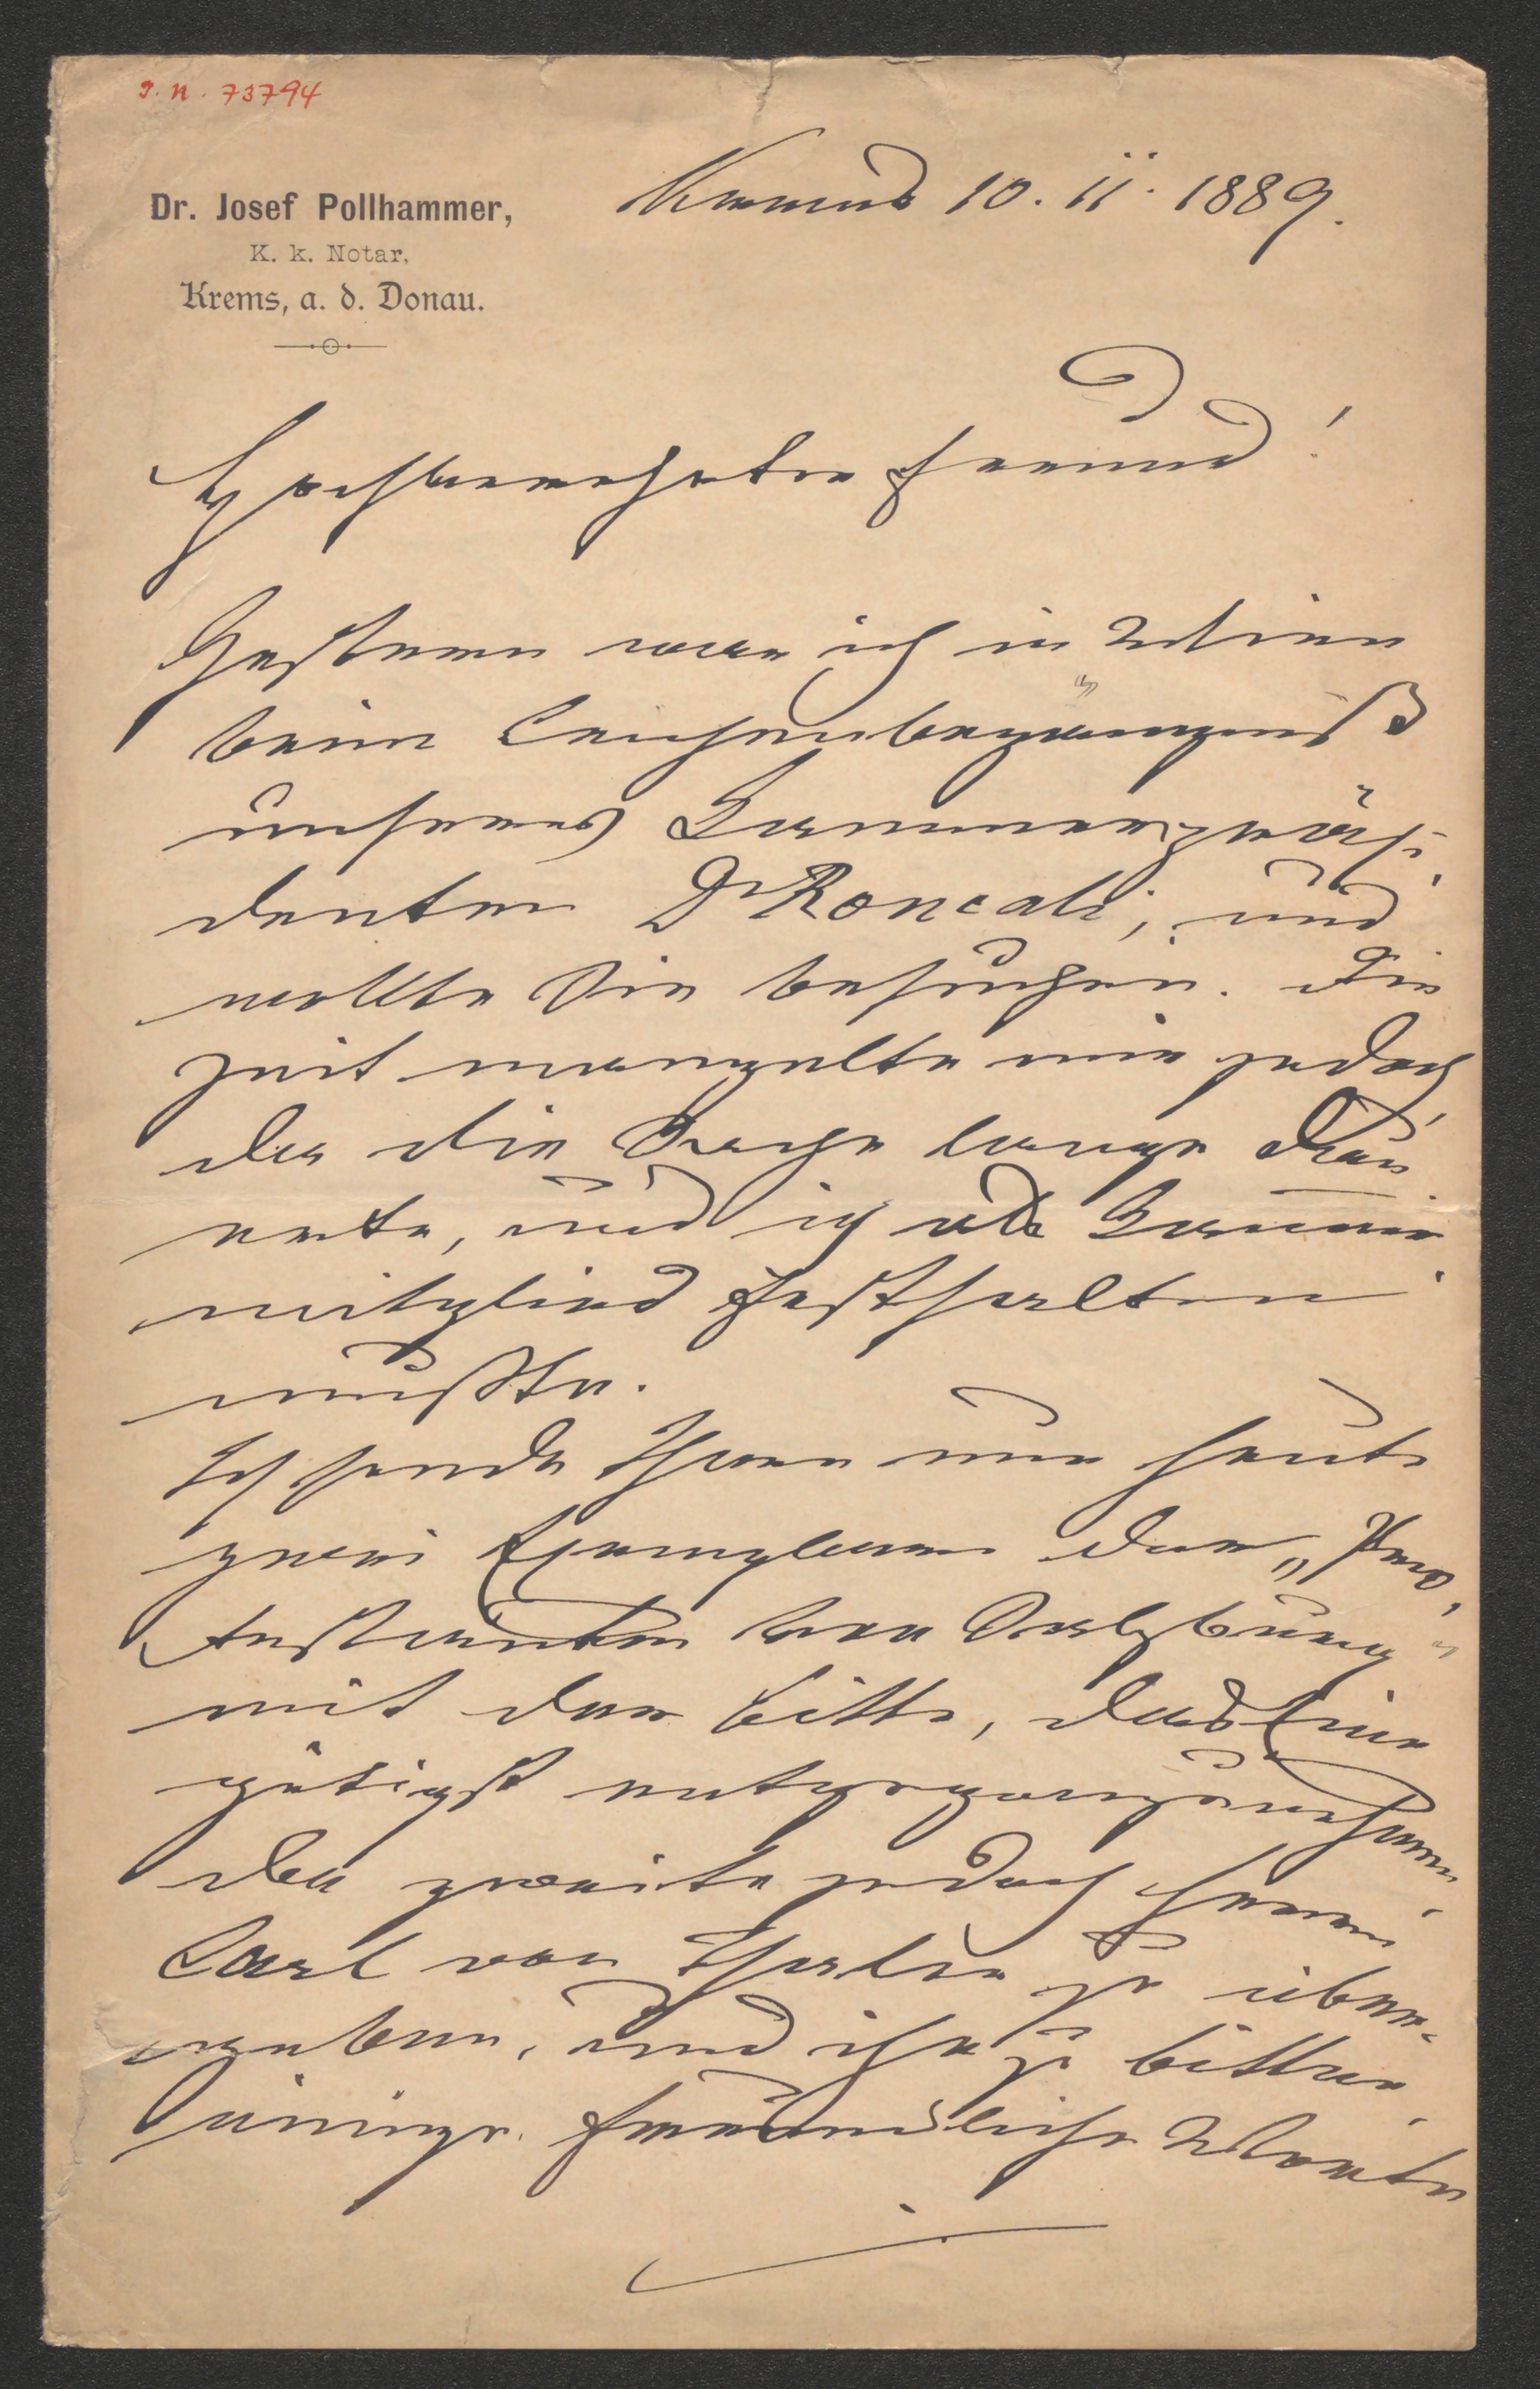 I. N. 73794
Dr. Josef Pollhammer,
K. k. Notar,
Krems, a. d. Donau.
Krems 10. 11. 1889.
Hochverehrter Freund!
Gestern war ich in Wien
beim Leichenbegängniß
unseres Kammerpräsi-
denten Dr Roncali, und
wollte Sie besuchen. Die
Zeit mangelte mir jedoch,
da die Sache lange dau
erte, und ich als Kammer
mitglied festhalten
mußte.
Ich sende Ihnen nun heute
zwei Exemplare der „Pro-
testanten von Salzburg"
mit der Bitte, das Eine
gütigst entgegenzunehmen
das zweite jedoch Herrn
Carl von Thaler zu über-
geben, und ihn zu bitten,
einige freundliche Worte